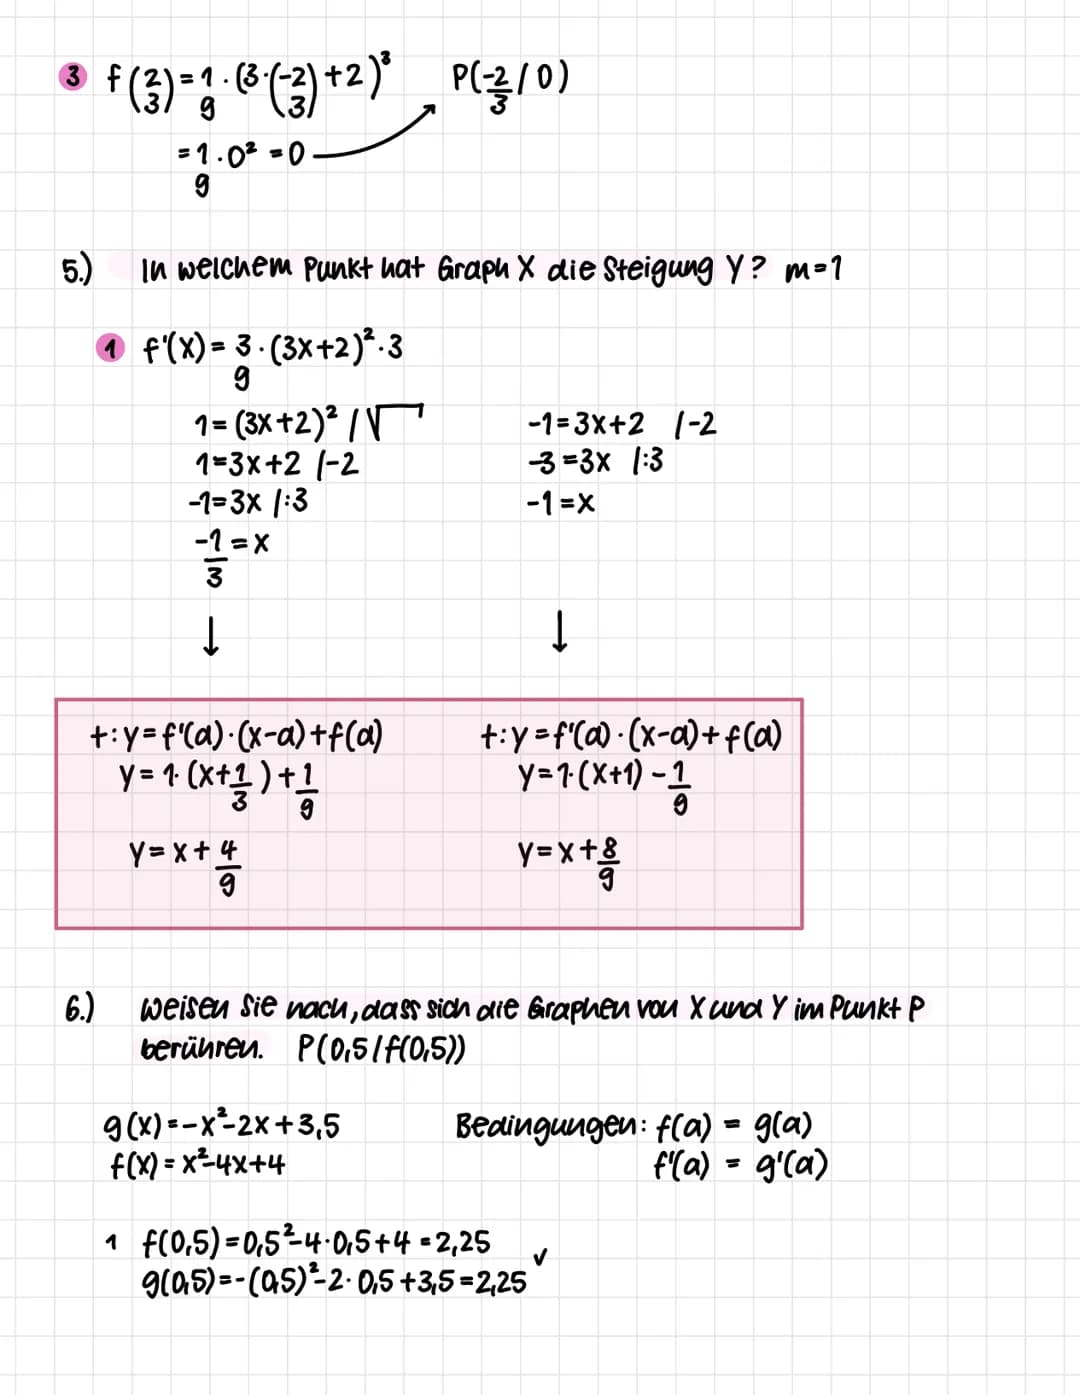 3 f(2/3) = 1/9 · (3·(-2/3)+2)³ P(-2/3 / 0)
= 1/9 · 0² = 0
5.) In welchem Punkt hat Graph X die Steigung Y? m=1
1 f'(x) = 3/9 · (3x+2)² · 3
1 = (3x+2)² /√
1=3x+2 /-2
-1=3x /:3
-1/3 = x
↓
-1=3x+2 /-2
-3=3x /:3
-1=x
↓
t: y=f'(a)·(x-a)+f(a)
y=1·(x+1/3)+1/9
y=x+4/9
t: y=f'(a)·(x-a)+f(a)
y=1·(x+1)-1/9
y=x+8/9
6.) Weisen Sie nach, dass sich die Graphen von X und Y im Punkt P
berühren. P(0,5/f(0,5))
g(x)=-x²-2x+3,5
f(x)=x²-4x+4
Bedingungen: f(a) = g(a)
f'(a) = g'(a)
1 f(0,5)=0,5²-4·0,5+4=2,25
g(0,5)=-(0,5)²-2·0,5+3,5=2,25 ✓